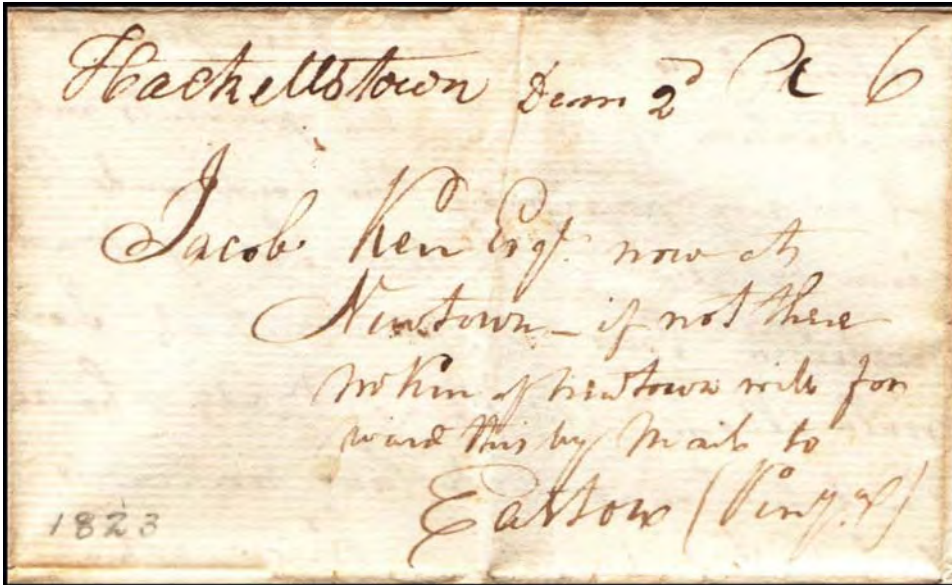 Hackettstown Decm 2d 6
Jacob Kerr Esqr. now at
Newtown - if not there
Mr Kerr of Newtown will for
ward this by Mail to
Easton (
1823